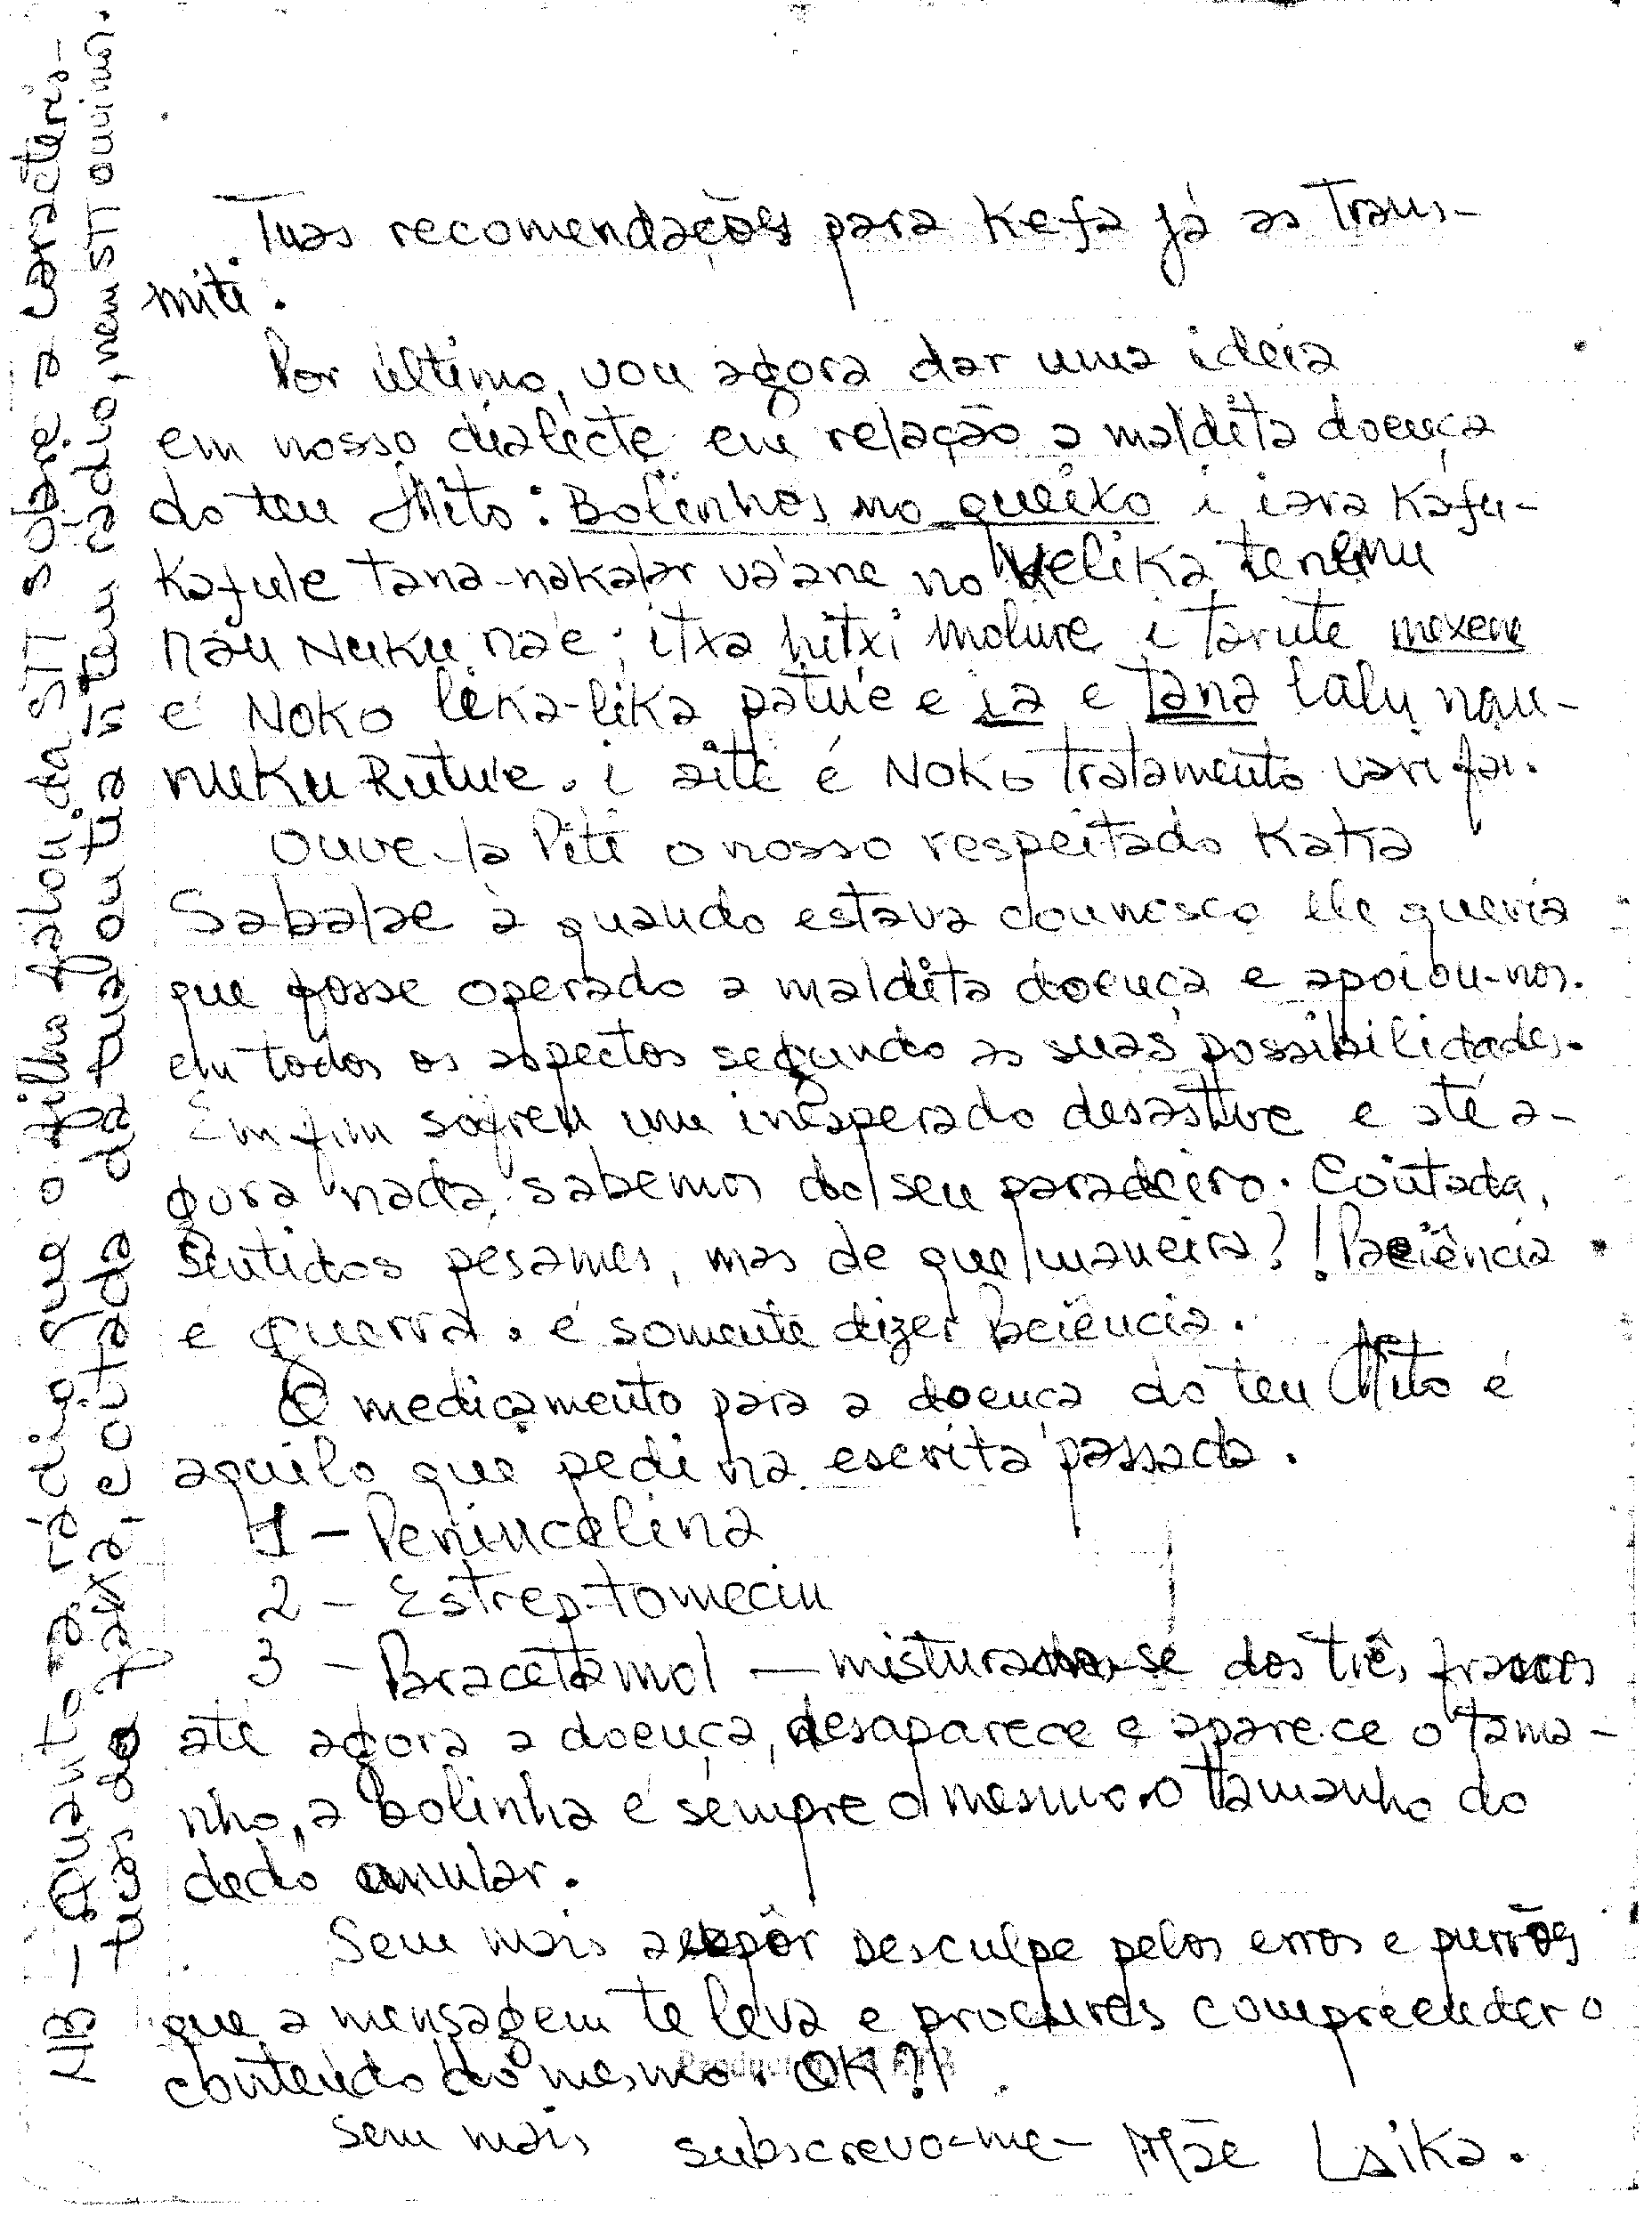 Tuas recomendações para Kefa já as trans-
miti.
Por último, vou agora dar uma ideia
em nosso dialecte em relação a maldita doença
do teu Mito: Bolinhos no queixo i iara Kafu-
Kafule tana-nakalar va'ane no Velika, tenenu
nau Nuku na'e; itxa hitxi molure i tarute mexene
e' Noko lika-lika patu'e e ia e tana lalu nau-
nuku Rutu'e. i aite é Noko tratamento vari fai.
Ouve-la Piti o nosso respeitado Katia
Sabalae à quando estava connosco ele queria
que fosse operado a maldita doença e apoiou-nos.
em todos os aspectos segundo as suas possibilidades.
Em fim sofreu um inesperado desastre e até a-
gora nada, sabemos do seu paradeiro. Coitada,
Sentidos pésames, mas de que maneira?! Paciência
é guerra. é somente dizer Paciência.
O medicamento para a doença do teu Mito é
aquilo que pedi na escrita passada.
1 - Penincelina
2 - Estreptomecin
3 - Paracetamol — misturando-se dos três frascos
até agora a doença, desaparece e aparece o tama-
nho, a bolinha é sempre o mesmo. o tamanho do
dedo anular.
Sem mais a expôr Desculpe pelos erros e purrões
que a mensagem te leva e procures compreender o
conteúdo do mesmo. OK?!
Sem mais subscrevo-me - Mãe Laika.
NB - Quanto a rádio que o filho falou da STT sobre a caracteris-
ticas da faixa, coitado da tua, outia in teu rádio, nem STT ouvimos.